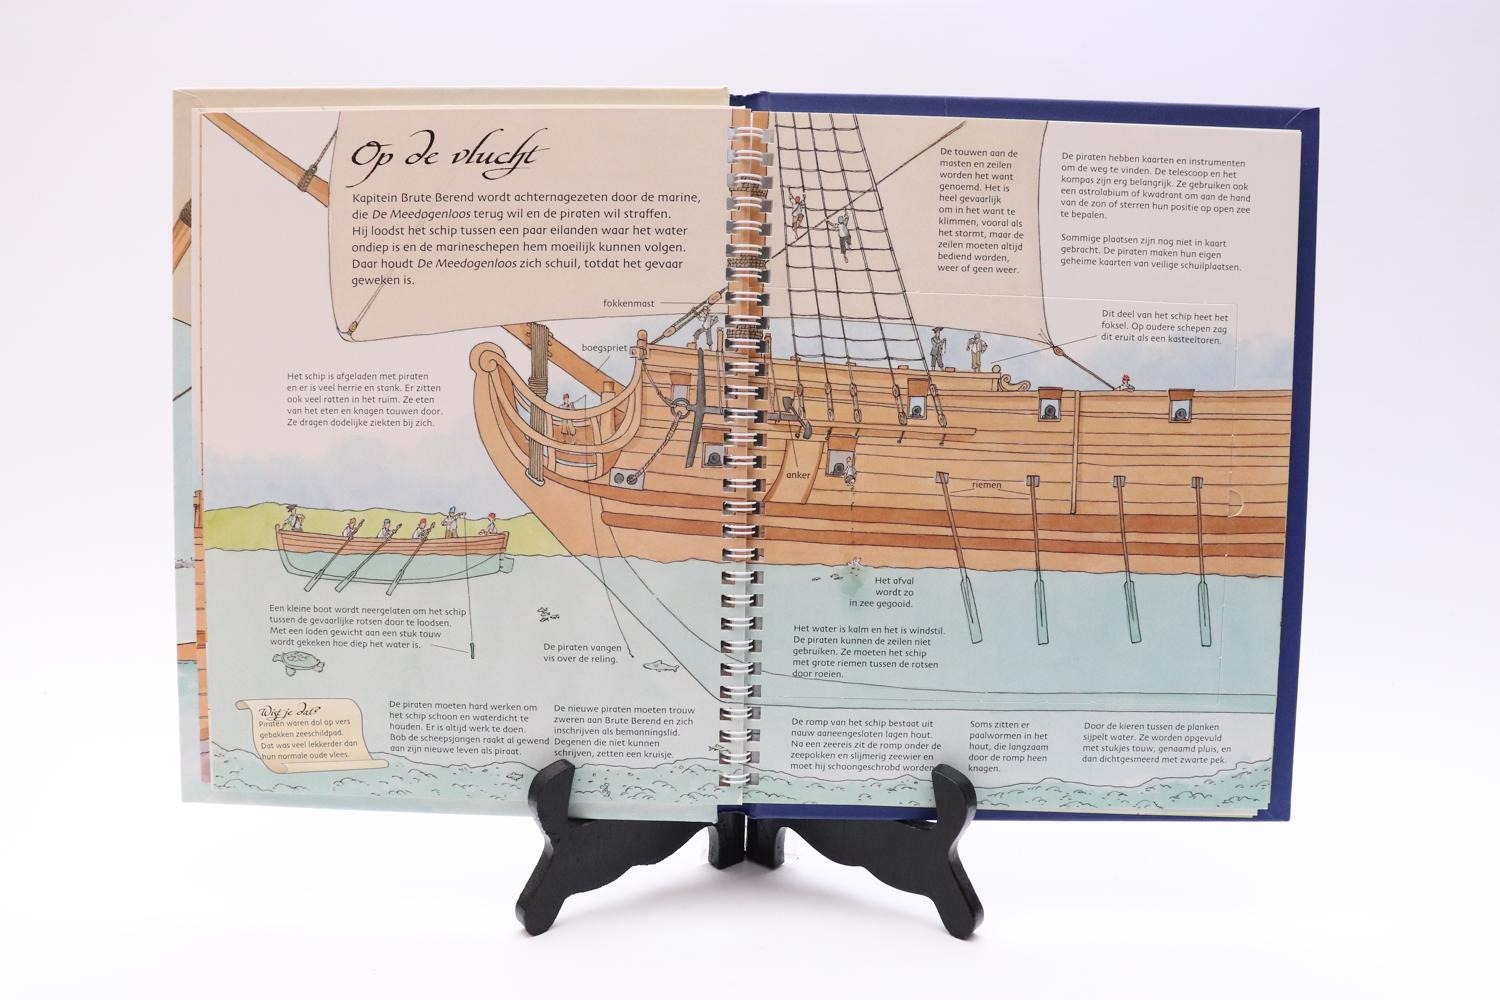 Op de vlucht
Kapitein Brute Berend wordt achternagezeten door de marine,
die De Meedogenloos terug wil en de piraten wil straffen.
Hij loodst het schip tussen een paar eilanden waar het water
ondiep is en de marineschepen hem moeilijk kunnen volgen.
Daar houdt De Meedogenloos zich schuil, totdat het gevaar
geweken is.
fokkenmast
boegspriet
Het schip is afgeladen met piraten
en er is veel herrie en stank. Er zitten
ook veel ratten in het ruim. Ze eten
van het eten en knagen touwen door.
Ze dragen dodelijke ziekten bij zich.
Een kleine boot wordt neergelaten om het schip
tussen de gevaarlijke rotsen door te loodsen.
Met een loden gewicht aan een stuk touw
wordt gekeken hoe diep het water is.
De piraten vangen
vis over de reling.
Wist je dat?
Piraten waren dol op vers
gebakken zeeschildpad.
Dat was veel lekkerder dan
hun normale oude vlees.
De piraten moeten hard werken om
het schip schoon en waterdicht te
houden. Er is altijd werk te doen.
Bob de scheepsjongen raakt al gewend
aan zijn nieuwe leven als piraat.
De nieuwe piraten moeten trouw
zweren aan Brute Berend en zich
inschrijven als bemanningslid.
Degenen die niet kunnen
schrijven, zetten een kruisje.
De touwen aan de
masten en zeilen
worden het want
genoemd. Het is
heel gevaarlijk
om in het want te
klimmen, vooral als
het stormt, maar de
zeilen moeten altijd
bediend worden,
weer of geen weer.
De piraten hebben kaarten en instrumenten
om de weg te vinden. De telescoop en het
kompas zijn erg belangrijk. Ze gebruiken ook
een astrolabium of kwadrant om aan de hand
van de zon of sterren hun positie op open zee
te bepalen.
Sommige plaatsen zijn nog niet in kaart
gebracht. De piraten maken hun eigen
geheime kaarten van veilige schuilplaatsen.
Dit deel van het schip heet het
foksel. Op oudere schepen zag
dit eruit als een kasteeltoren.
anker
riemen
Het afval
wordt zo
in zee gegooid.
Het water is kalm en het is windstil.
De piraten kunnen de zeilen niet
gebruiken. Ze moeten het schip
met grote riemen tussen de rotsen
door roeien.
De romp van het schip bestaat uit
nauw aaneengesloten lagen hout.
Na een zeereis zit de romp onder de
zeepokken en slijmerig zeewier en
moet hij schoongeschrobd worden.
Soms zitten er
paalwormen in het
hout, die langzaam
door de romp heen
knagen.
Door de kieren tussen de planken
sijpelt water. Ze worden opgevuld
met stukjes touw, genaamd pluis, en
dan dichtgesmeerd met zwarte pek.